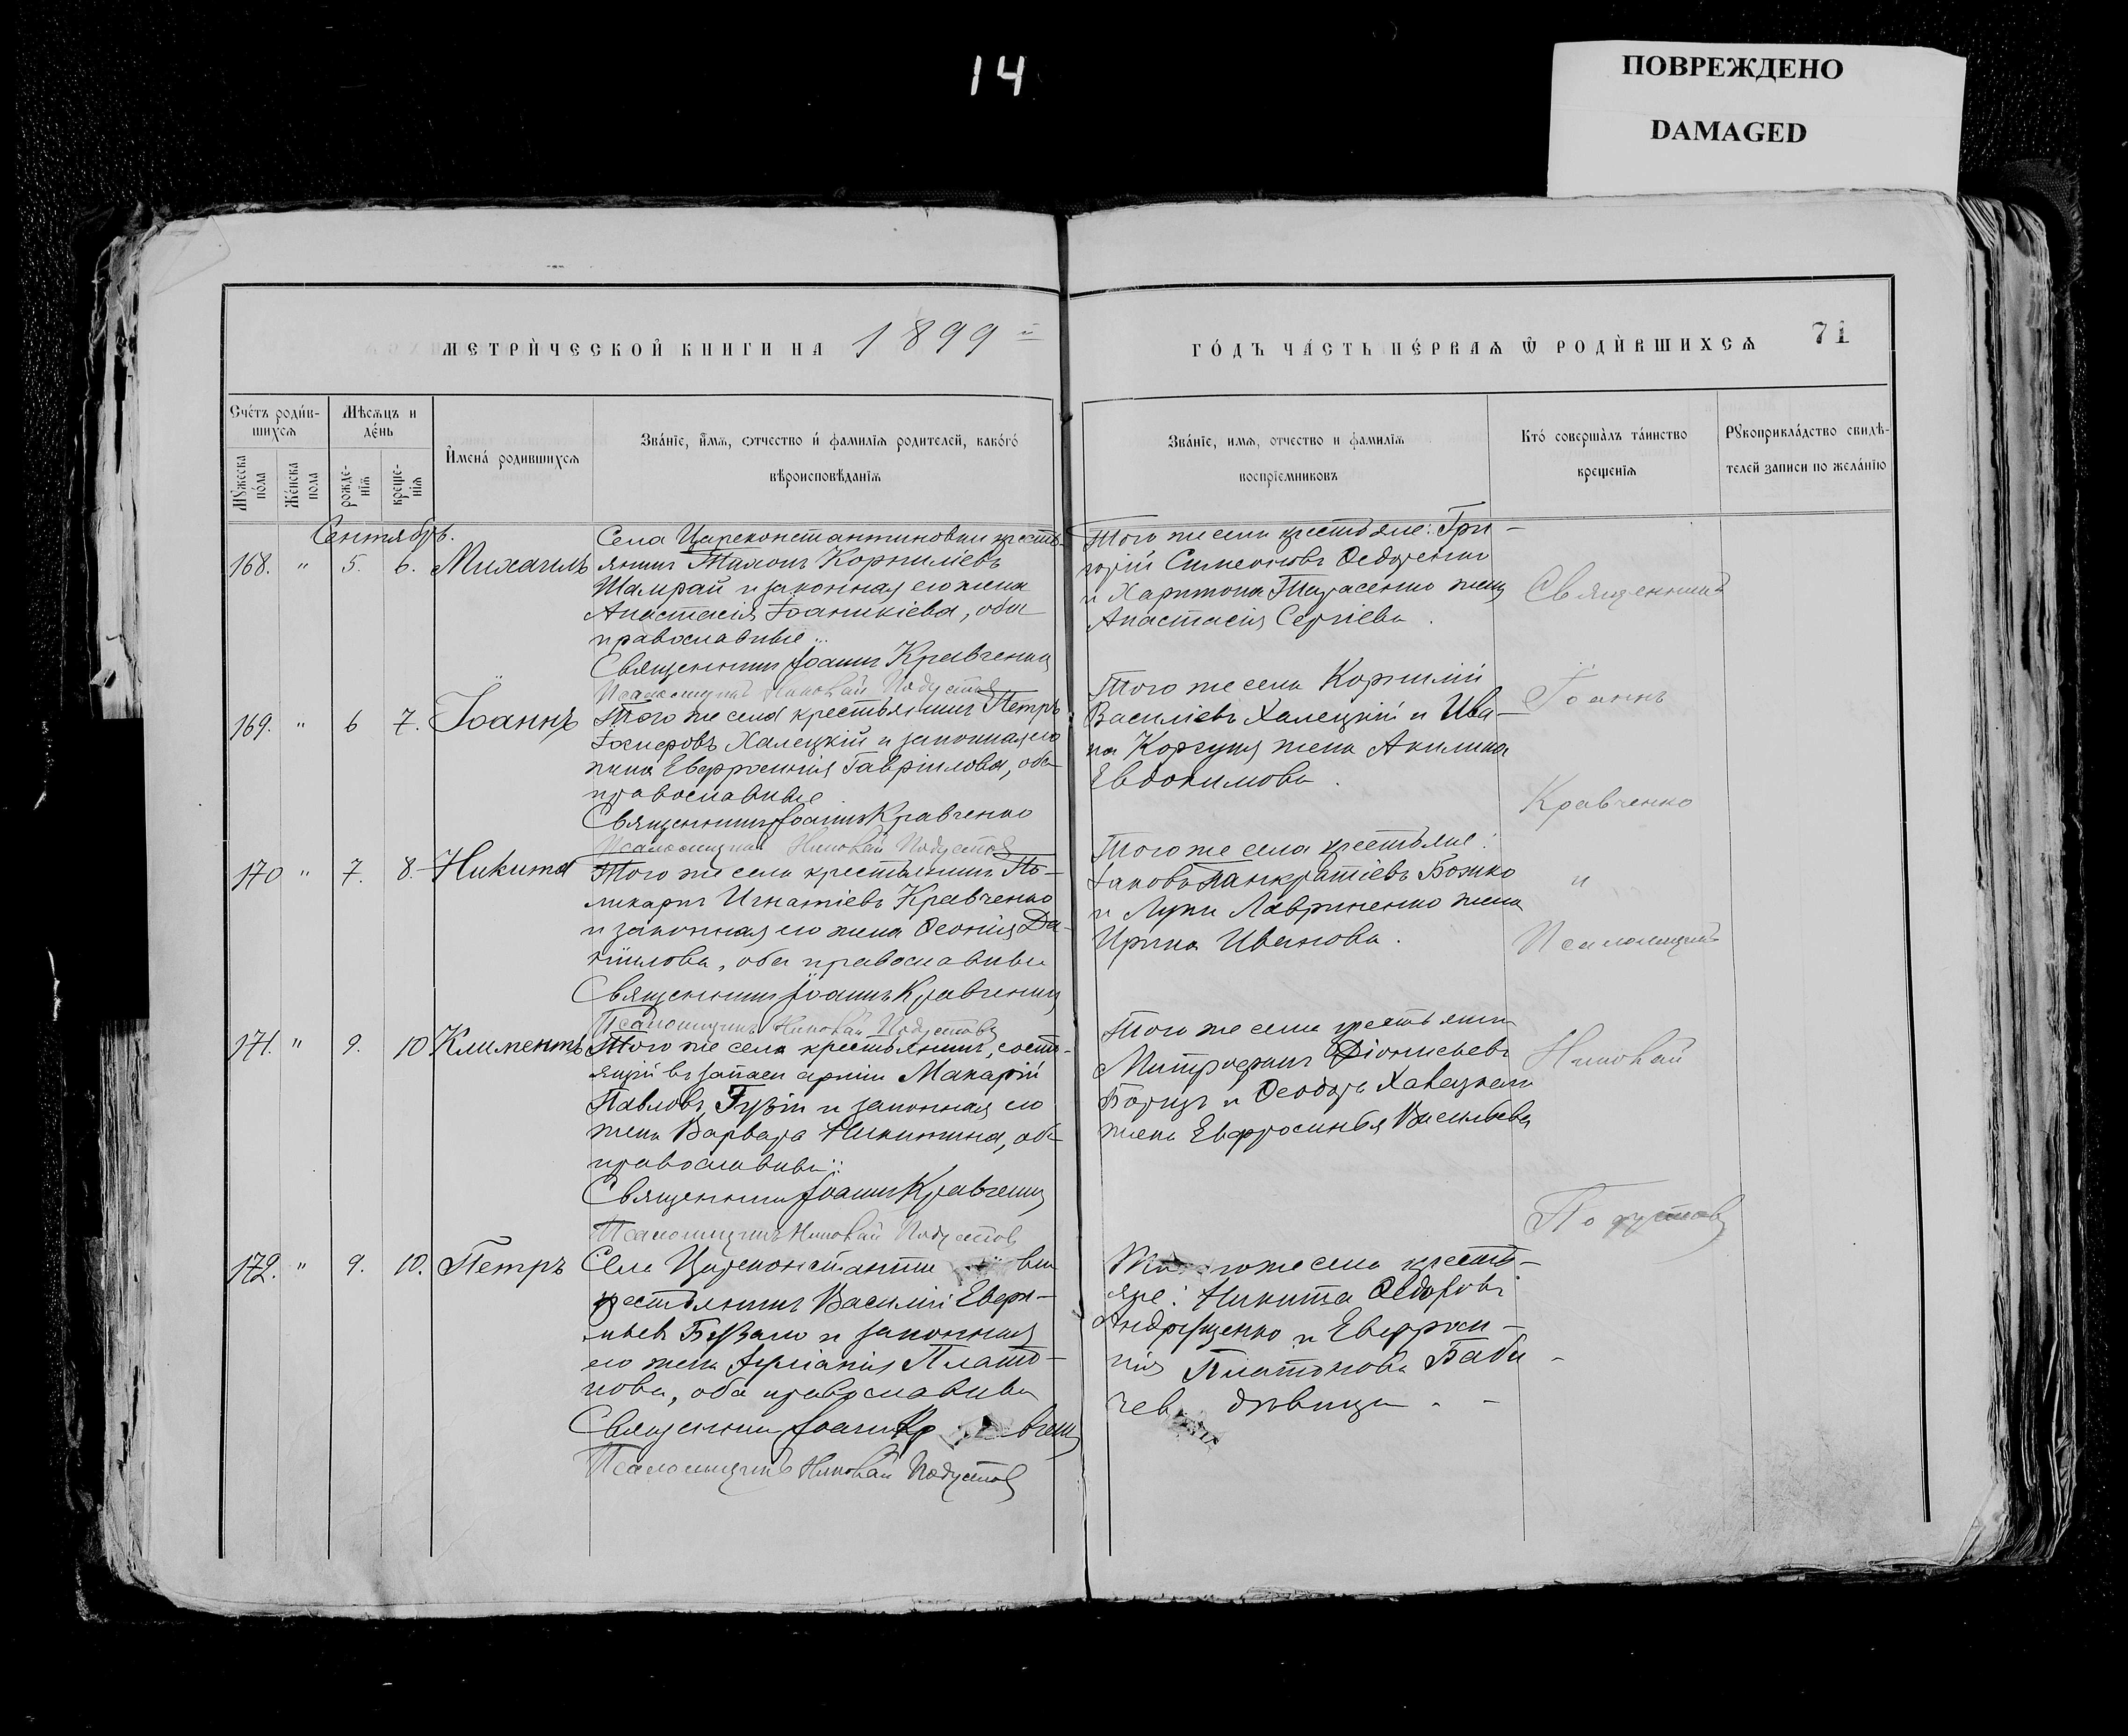 14
ПОВРЕЖДЕНО
DAMAGED
МЕТРИ́ЧЕСКОЙ КНИГИ НА 1899 й
ГО́ДЪ ЧА́СТЬ ПЕ́РВАѦ Ѡ҆ РОДИ́ВШИХСѦ 71
Сче́тъ роди́в-
шихсѧ
Мѣсѧцъ и
де́нь
Мꙋ́жеска
по́ла
Же́нска
пола
рожде-
нїѧ
креще-
нїѧ
И҆мена́ родившихсѧ
Зва́нїе, и҆́мѧ, ѻтчество и҆ фамилїѧ родителей, како́гѡ́
вѣроисповѣданїѧ
Зва́нїе, имѧ, отчество и фамилїѧ
воспрїемниковъ
Кто́ соверша́лъ та́инство
крещенїѧ
Рꙋкоприкла́дство свидѣ-
телей записи по жела́нїю
Сентябрь.
168. " 5. 6. Михаилъ
Села Цареконстантиновки кресть-
янинъ Тимонъ Корнилiевъ
Шамрай и законная его жена
Анастасiя Iоанникiева, оба
православные
Священникъ Iоаннъ Кравченко
Псаломщикъ Николай Подустов
Того же села крестьяне: Гри-
горiй Симеоновъ Ѳедоренко
и Харитона Тарасенко жена
Анастасiя Сергiева.
Священникъ
169. " 6 7. Iоаннъ
Того же села крестьянинъ Петръ
Iосифовъ Халецкiй и законная его
жена Евфросинiя Гаврiилова, оба
православные
Священникъ Iоаннъ Кравченко
Псаломщикъ Николай Подустов
Того же села Корнилiй
Василiевъ Халецкiй и Ива-
на Корсуня жена Акилина
Евдокимова.
Iоаннъ
Кравченко
170 " 7. 8. Никита
Того же села крестьянинъ По-
ликарпъ Игнатiевъ Кравченко
и законная его жена Ѳеонiя Да-
нiилова, оба православные
Священникъ Iоаннъ Кравченко
Псаломщикъ Николай Подустов
Того же села крестьяне:
Iаковъ Панкратiевъ Божко
и Луки Лавриненко жена
Ирина Иванова.
"
Псаломщикъ
171. " 9. 10 Климентъ
Того же села крестьянинъ, состо-
ящiй въ запасе армiи Макарiй
Павловъ Гузiй и законная его
жена Варвара Никитина, оба
православные
Священникъ Iоаннъ Кравченко
Псаломщикъ Николай Подустов
Того же села крестьянин
Митрофанъ Дiонисьевъ
и Ѳеодора Халецкаго
жена Евфросинья Васильева
Николай
Подустовъ
172. " 9. 10. Петръ
Села Цареконстантиновки
крестьянинъ Василiй
и законная
его жена Плато-
нова, оба православные
Священникъ Iоаннъ Кравченко
Псаломщикъ Николай Подустов
того же села кресть-
яне: Никита Ѳедоровъ
Андрущенко и Евфроси-
нiя Платонова Баби-
чева девица.